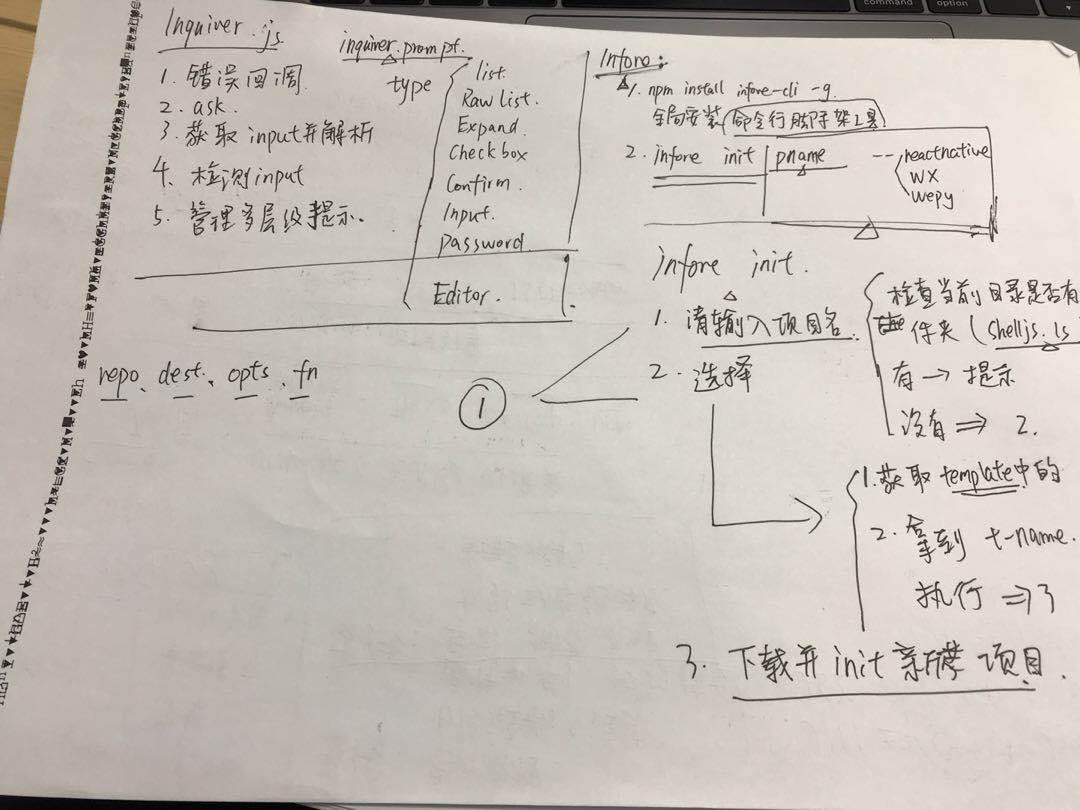 Inquirer.js
1. 错误回调
2. ask.
3. 获取input并解析
4. 检测input
5. 管理多层级提示.
inquirer.prompt.
type
list.
Raw List.
Expand.
Checkbox
Confirm.
Input.
password
Editor.
repo、dest、opts、fn
①
Infore:
1. npm install infore-cli -g
全局安装(命令行脚手架工具)
2. infore init pname -- reactnative
wx
wepy
infore init.
1. 请输入项目名.
检查当前目录是否有
件夹 (shelljs.ls
有 → 提示
没有 ⇒ 2.
2. 选择
1. 获取 template中的
2. 拿到 t-name.
执行 ⇒ 3
3. 下载并init 新建项目.
command
option